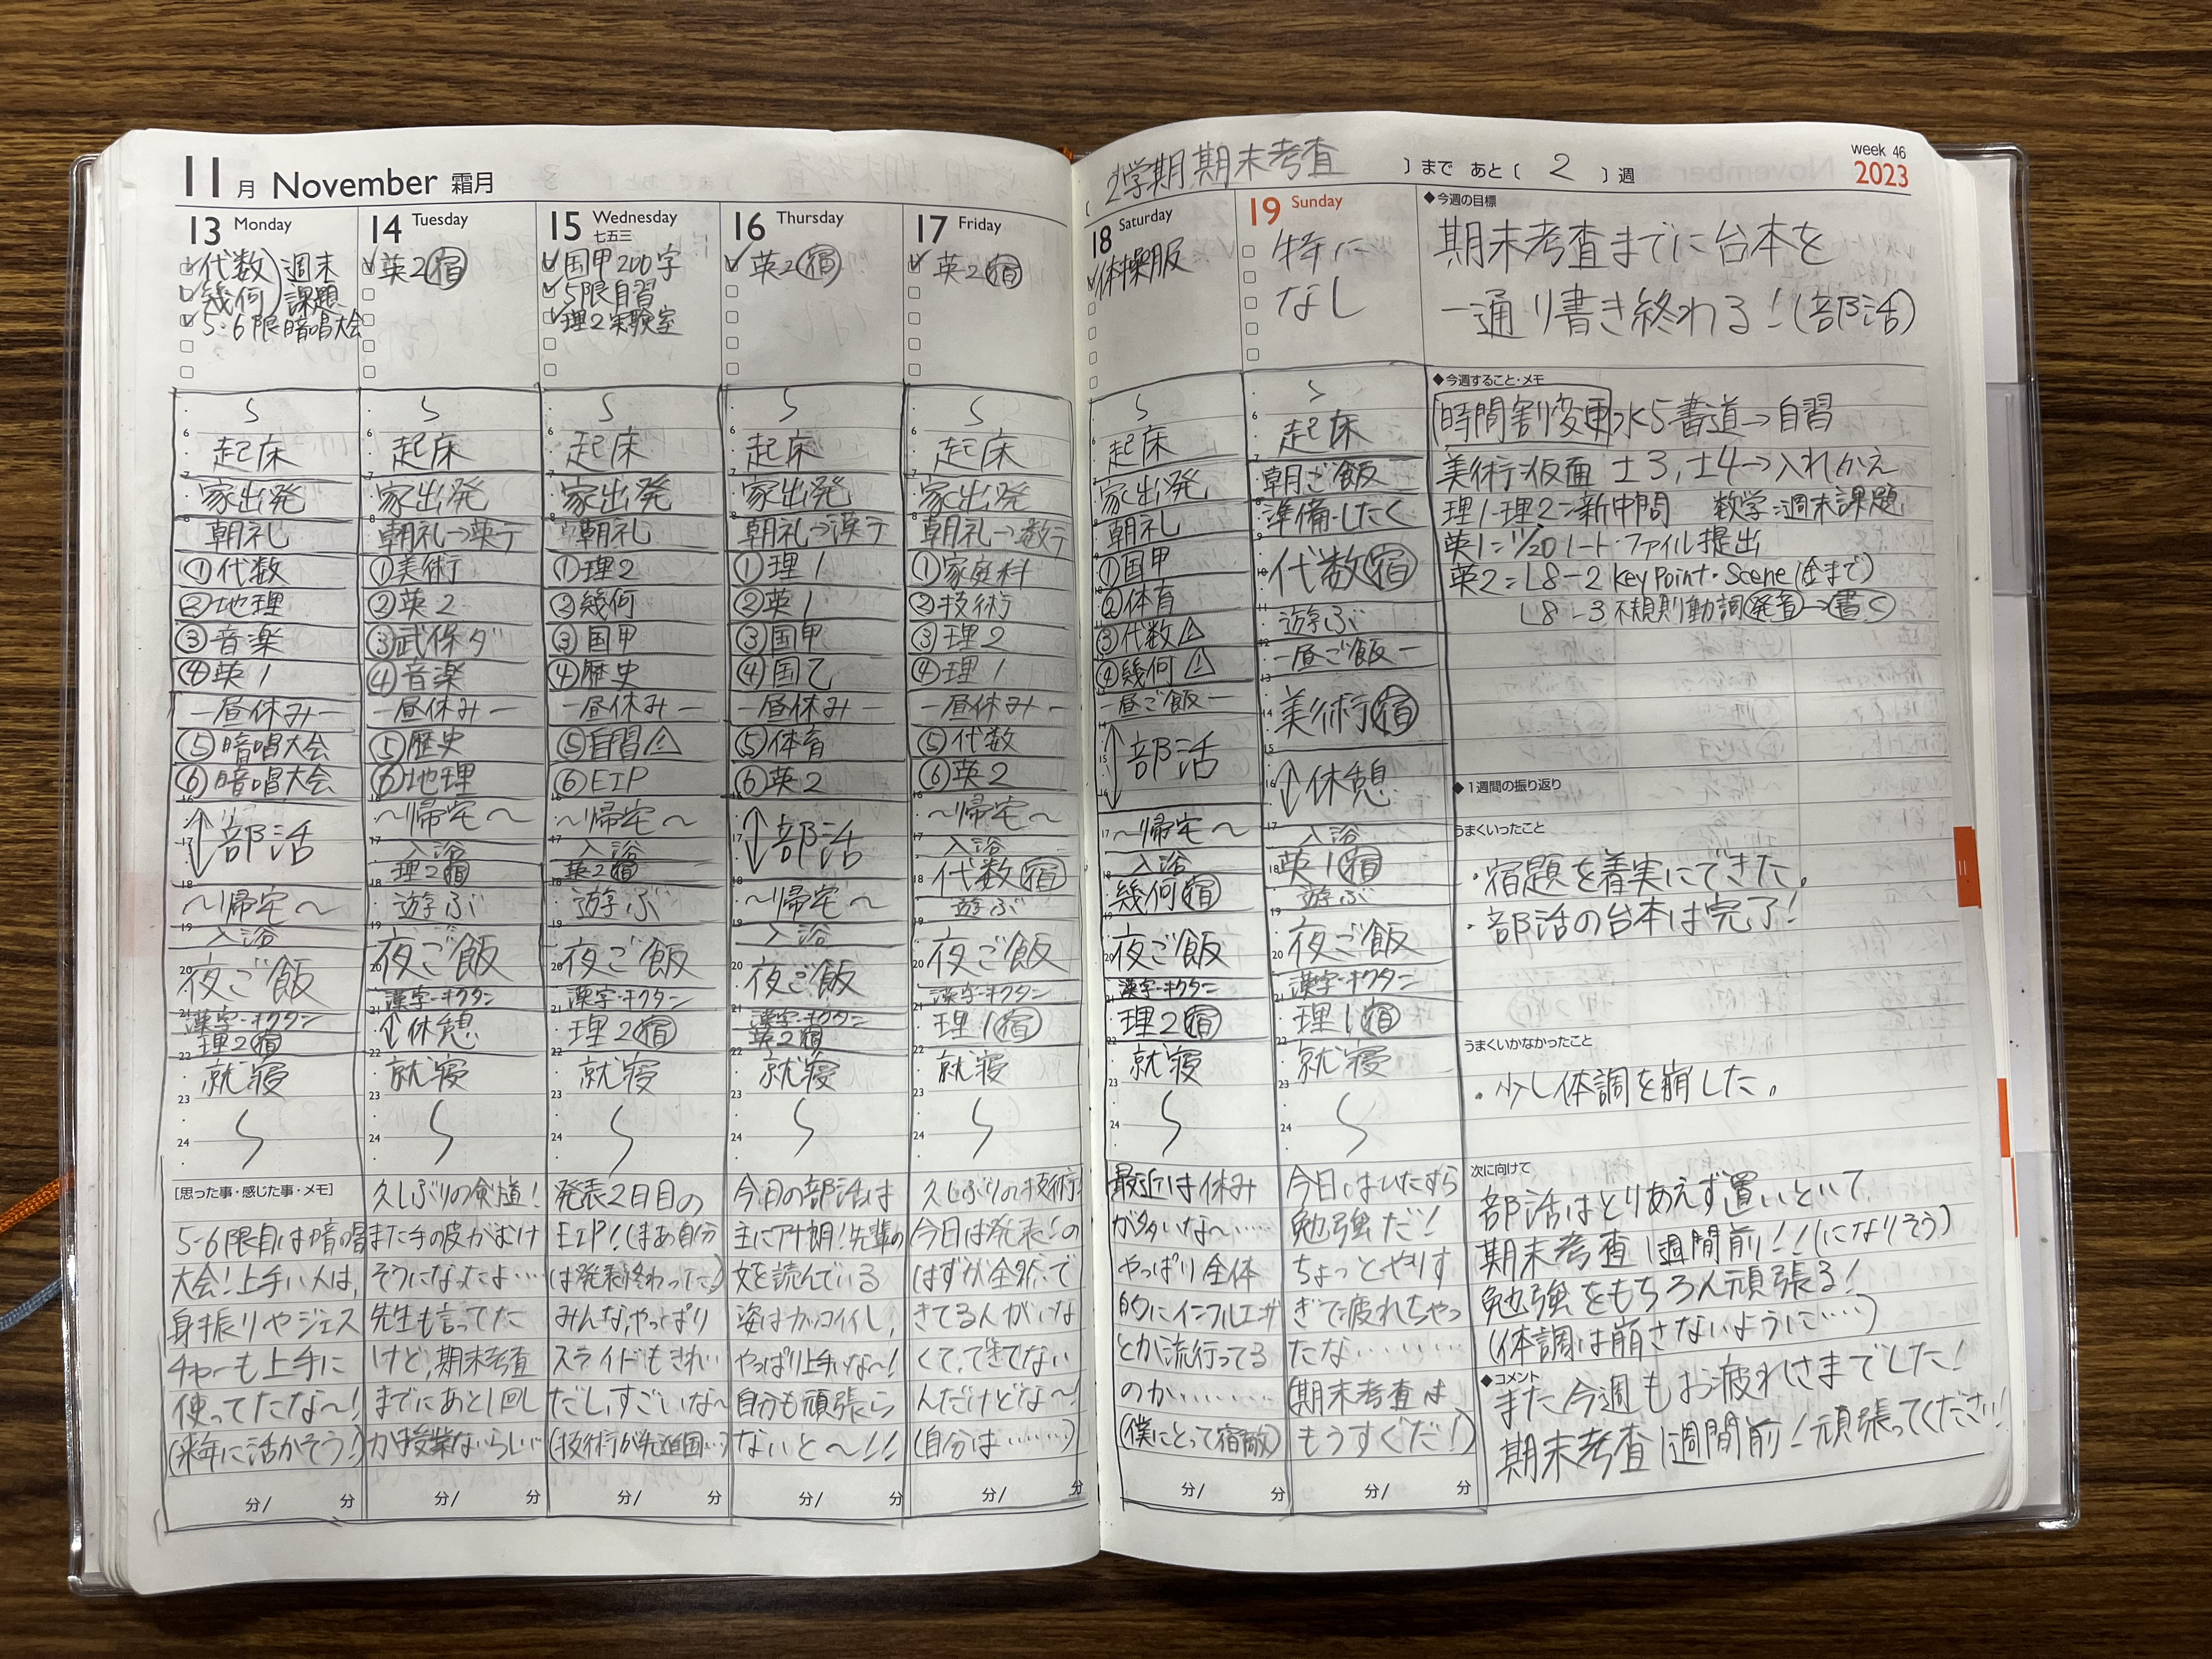 11月 November 霜月
13 Monday
代数 週末
幾何 課題
5・6限暗唱大会
6
起床
7
家出発
8
朝礼
①代数
②地理
③音楽
④英1
ー昼休みー
⑤暗唱大会
⑥暗唱大会
16
部活
17
18
〜帰宅〜
19
入浴
20
夜ご飯
21
漢字・キクタン
理2宿
22
就寝
23
24
[思った事・感じた事・メモ]
5-6限目は暗唱
大会!上手い人は、
身振りやジェス
チャーも上手に
使ってたな〜!
(来年に活かそう!)
分/ 分
14 Tuesday
英2宿
6
起床
7
家出発
8
朝礼→英テ
①美術
②英2
③武保ダ
④音楽
ー昼休みー
⑤歴史
⑥地理
16
〜帰宅〜
17
入浴
理2宿
18
遊ぶ
19
夜ご飯
20
漢字・キクタン
21
休憩
22
就寝
23
24
久しぶりの剣道!
また手の皮がむけ
そうになったよ…
先生も言ってた
けど、期末考査
までにあと1回し
か授業ないらしい
分/ 分
15 Wednesday
七五三
国甲200字
5限自習
理2実験室
6
起床
7
家出発
8
朝礼
①理2
②幾何
③国甲
④歴史
ー昼休みー
⑤自習⚠
⑥EIP
16
〜帰宅〜
17
入浴
英2宿
18
遊ぶ
19
夜ご飯
20
漢字・キクタン
21
理2宿
22
就寝
23
24
発表2日目の
EIP!(まあ自分
は発表終わった!)
みんな、やっぱり
スライドもきれい
だし、すごいな〜
分/ 分
16 Thursday
英2宿
6
起床
7
家出発
8
朝礼→漢テ
①理1
②英1
③国甲
④国乙
ー昼休みー
⑤体育
⑥英2
16
部活
17
18
〜帰宅〜
19
入浴
20
夜ご飯
21
漢字・キクタン
英2宿
22
就寝
23
24
今月の部活は
文を読んでいる
姿はカッコイイし、
やっぱり上手いな〜!
自分も頑張ら
ないと〜!!
分/ 分
17 Friday
英2宿
6
起床
7
家出発
8
朝礼→数テ
①家庭科
②技術
③理2
④理1
ー昼休みー
⑤代数
⑥英2
16
〜帰宅〜
17
入浴
18
代数宿
遊ぶ
19
夜ご飯
20
漢字・キクタン
21
理1宿
22
就寝
23
24
久しぶりの技術!
今日は発表!の
はずが全然で
きてる人がいな
くて、できてない
んだけどな〜!
(自分は………)
分/ 分
(2学期期末考査 )まで あと( 2 )週
week 46
2023
18 Saturday
体操服
6
起床
7
家出発
8
朝礼
9
①国甲
②体育
③代数⚠
④幾何⚠
ー昼ご飯ー
14
部活
15
16
17
〜帰宅〜
18
入浴
幾何宿
19
夜ご飯
20
漢字・キクタン
21
理2宿
22
就寝
23
24
最近は休み
が多いな〜……
やっぱり全体
的にインフルエンザ
とか流行ってる
のか………
(僕にとって宿敵)
分/ 分
19 Sunday
特に
なし
6
起床
7
朝ご飯
8
準備・したく
9
代数宿
10
11
遊ぶ
12
ー昼ご飯ー
13
美術宿
14
15
休憩
16
17
入浴
18
英1宿
遊ぶ
19
夜ご飯
20
漢字・キクタン
21
理1宿
22
就寝
23
24
今日はひたすら
勉強だ!
ちょっとやりす
ぎて疲れちゃっ
たな………
(期末考査は
もうすぐだ!)
分/ 分
◆今週の目標
期末考査までに台本を
一通り書き終わる!(部活)
◆今週すること・メモ
時間割変更 水5書道→自習
美術:仮面 土3,土4→入れかえ
理1・理2=新中問 数学:週末課題
英1=11/20 ノート・ファイル提出
英2=L8-2 Key Point・Scene(金まで)
L8-3 不規則動詞発音→書く
◆1週間の振り返り
うまくいったこと
・宿題を着実にできた。
・部活の台本は完了!
うまくいかなかったこと
・少し体調を崩した。
次に向けて
部活はとりあえず置いといて
期末考査1週間前!!(になりそう)
勉強をもちろん頑張る!
(体調は崩さないように……)
◆コメント
また今週もお疲れさまでした!
期末考査1週間前!頑張ってください!
11